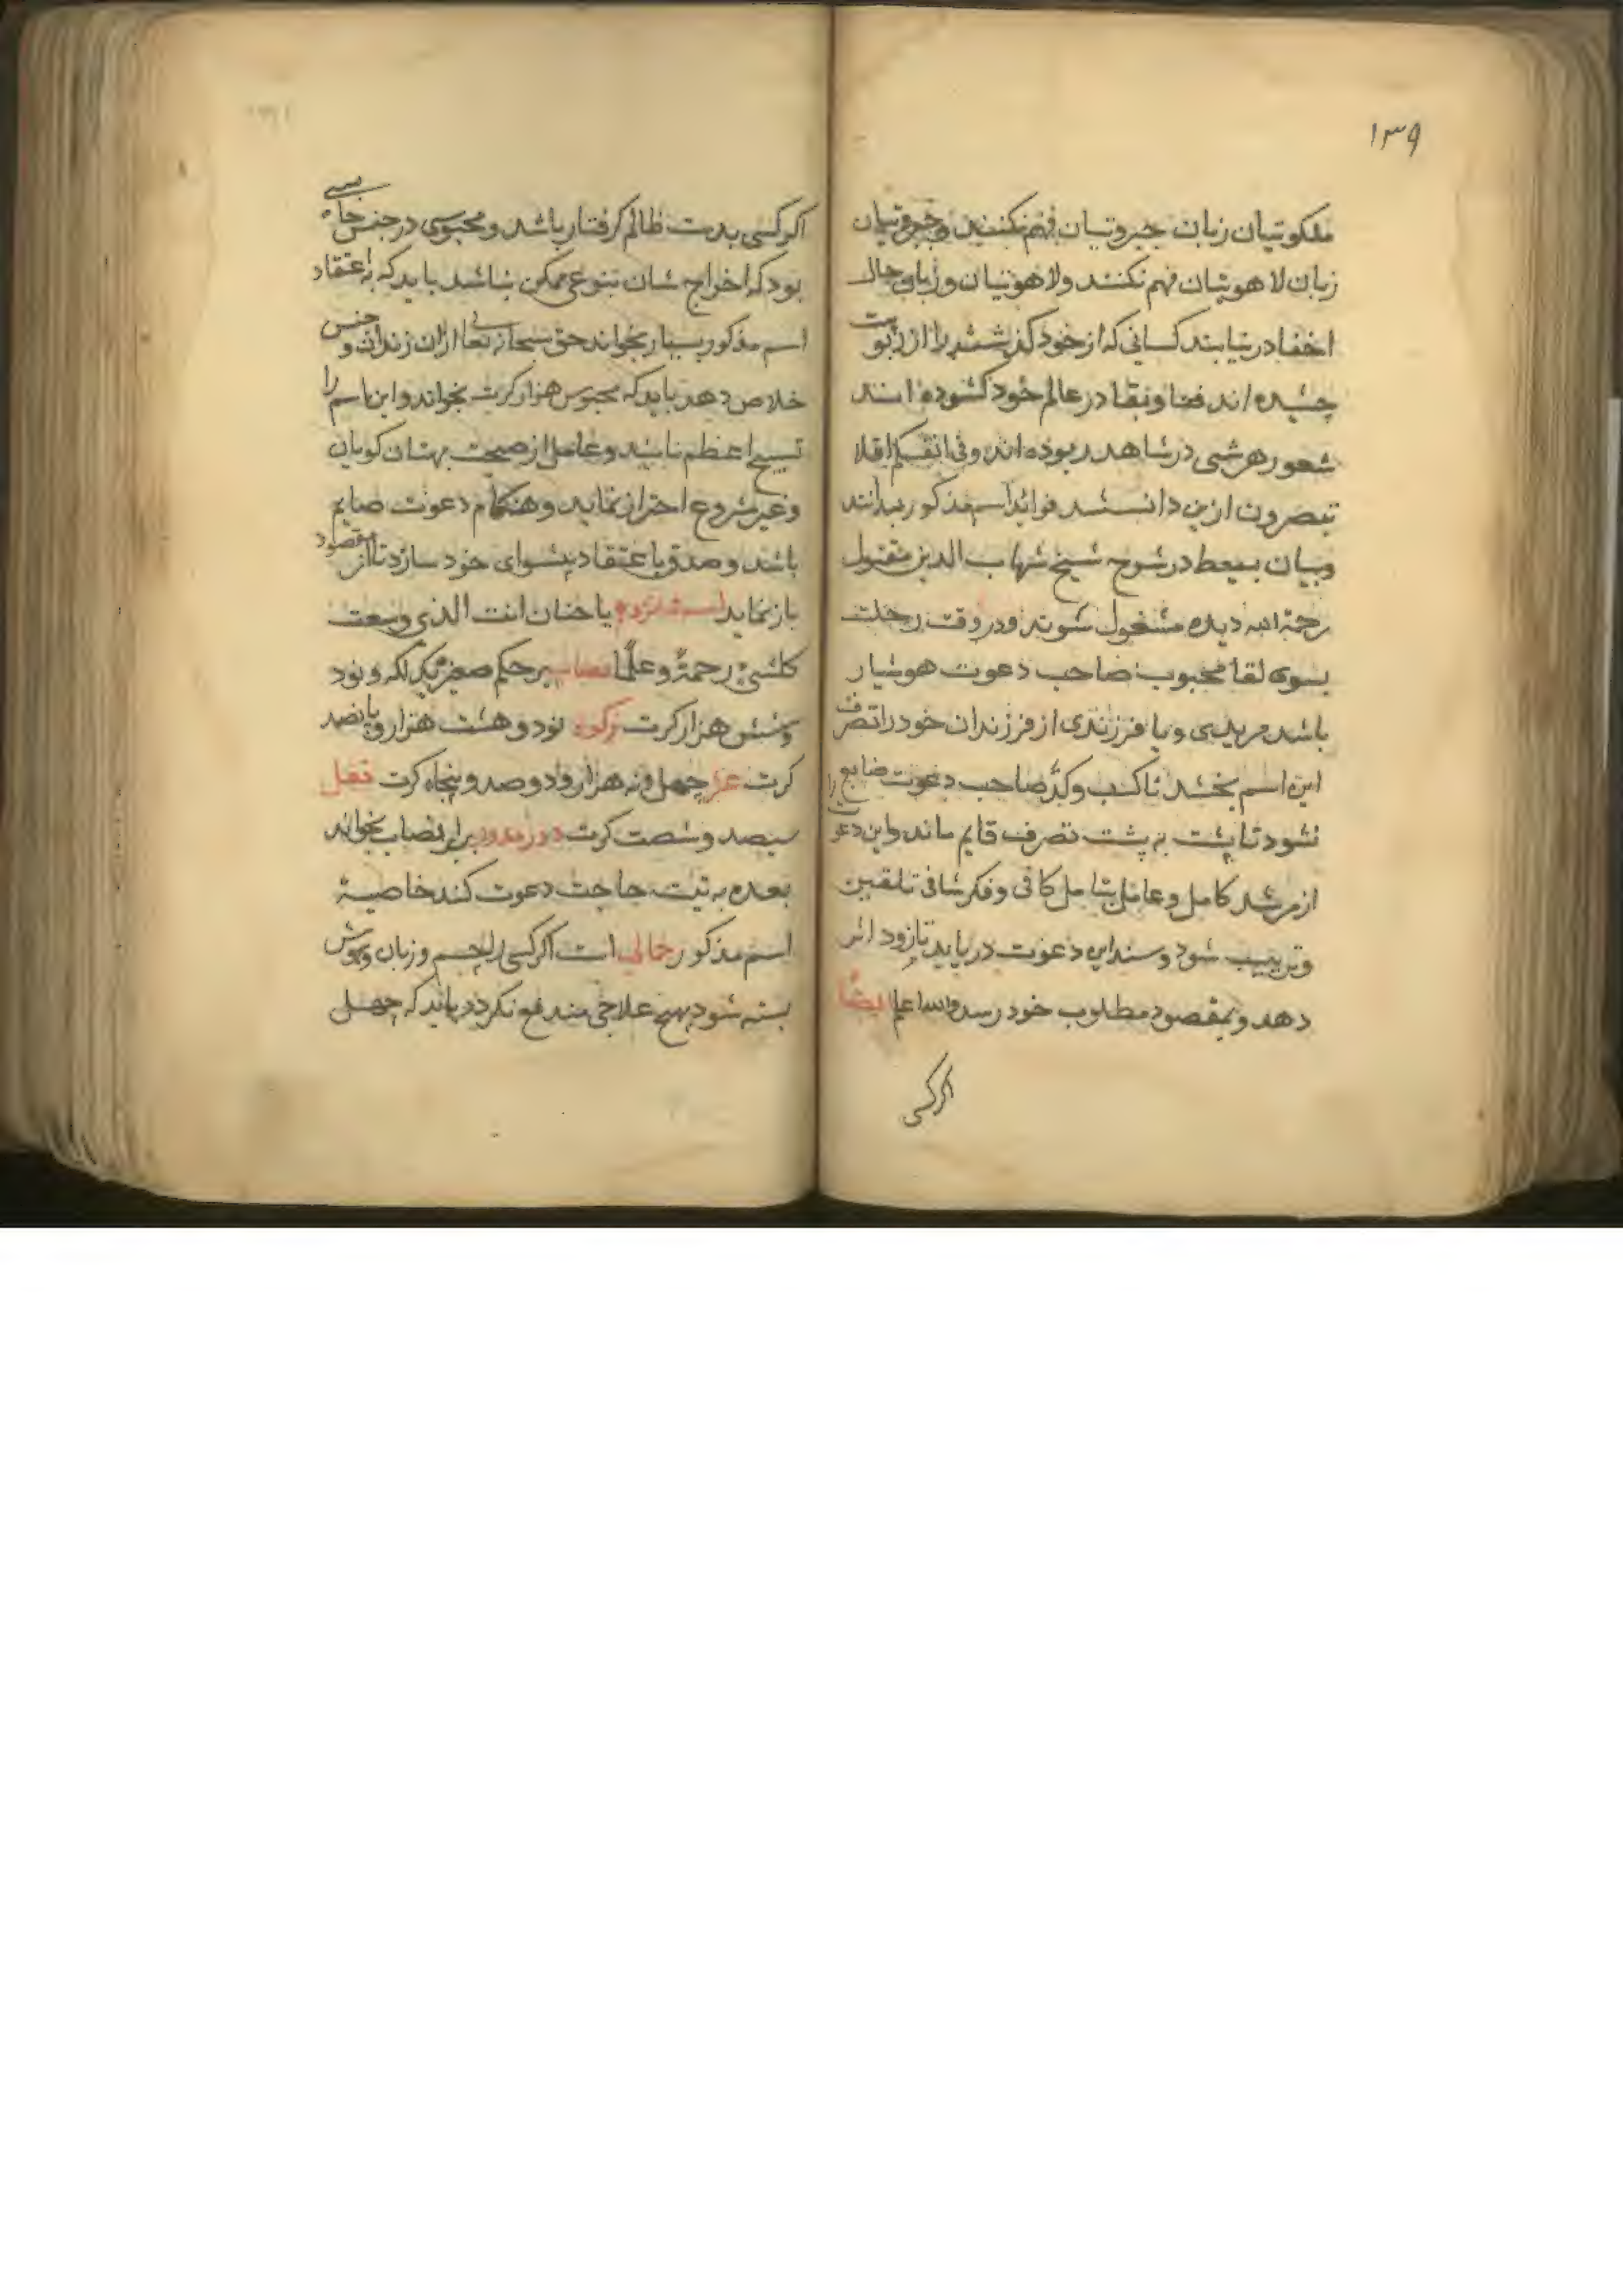 ۱۳۹
ملکوتیان زبان جبروتیان فهم نکنند و جبروتیان
زبان لاهوتیان فهم نکنند ولاهوتیان وزبان حال
اخفا در نیابند کسانی که از خود کذشتند
چشیده اند فنا و بقا در عالم خود کشوده اند
شعور هر شی در شاهد ربوده اند وفی انفسکم افلا
تبصرون ازین دانستند فواید اسم مذکور بدانند
وبیان بسیط در شرح شیخ شهاب الدین مقتول
رحمة الله دیده مشغول شوند ودر وقت رحلت
بسوی لقا محبوب صاحب دعوت هوشیار
باشد مریدی ویا فرزندی از فرزندان خود را تصرف
این اسم بخشد تا کسب وکد صاحب دعوت ضایع
نشود تا پشت به پشت تصرف قایم ماند واین دعوت را
از مرشد کامل وعامل شامل کافی وفکر شافی تلقین
وترتیب شود وسند این دعوت دریابد تا زود اثر
دهد وبمقصود مطلوب خود رسد والله اعلم ایضا
اکرکسی
اکرکسی بدست ظالم کرفتار باشد ومحبوسی در حبس
بود که اخراج شان بنوعی ممکن نباشد باید که باعتقاد
اسم مذکور بسیار بخواند حق سبحانه تعالی ازان زندان وحبس
خلاص دهد باید که محبوس هزار کرت بخواند واین اسم را
تسبیح اعظم نامند وعامل از صحبت بهتان کویان
وغیر مشروع احتراز نماید وهنکام دعوت صایم
باشد وصدق با عتقاد پیشوای خود سازد تا اثر مقصود
باز نماید اسم شانزدهم یا حنان انت الذی وسعت
کلشیء رحمة وعلما نصاب بر حکم صغیر یک لکه ونود
وشش هزار کرت زکوة نود وهشت هزار وپانصد
کرت عشر چهل ونه هزار ودو صد وپنجاه کرت قفل
سیصد وشصت کرت دور مدور برابر نصاب بخواند
بعده به نیت حاجت دعوت کند خاصیة
اسم مذکور جمالی است اکرکسی را چشم وزبان وهوش
بسته شود بهیچ علاجی مندفع نکردد باید که چهل